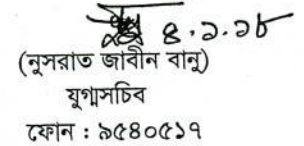 ৪.১.১৮
(নুসরাত জাবীন বানু)
যুগ্মসচিব
ফোন : ৯৫৪০৫১৭